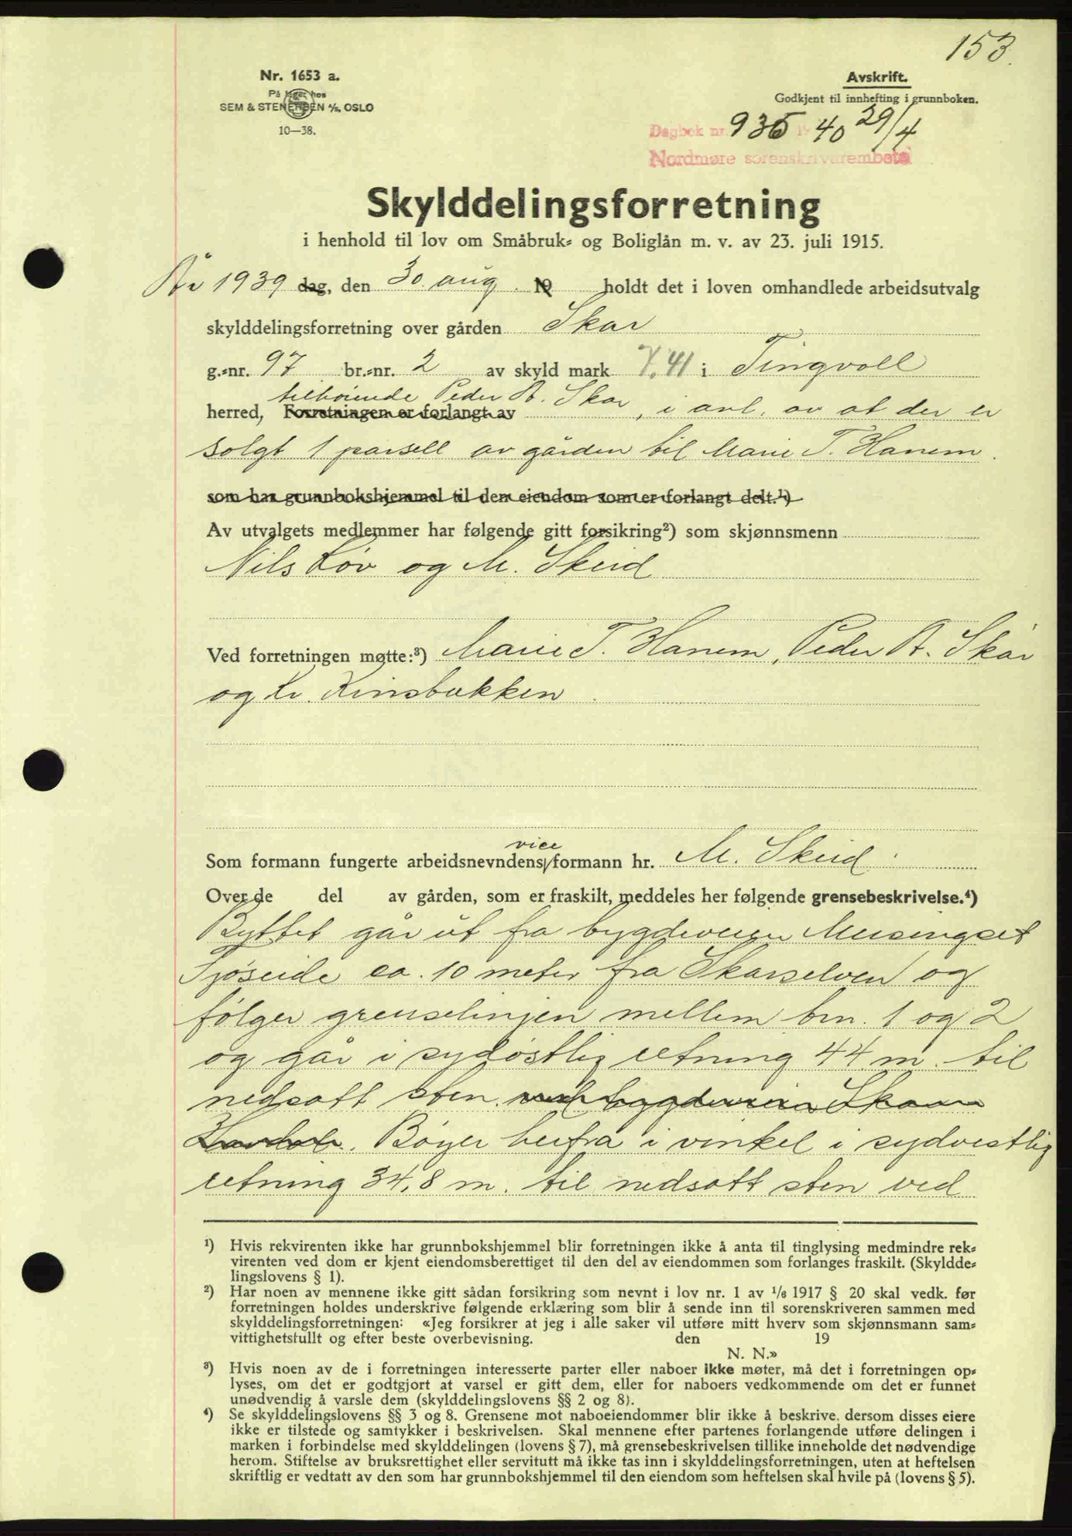 153.
Nr. 1653 a.
På lager hos
SEM & STENERSEN A/S. OSLO
10—38.
Avskrift.
Godkjent til innhefting i grunnboken.
Dagbok nr. 935 19 40 29/4
Nordmøre sorenskriverembete
Skylddelingsforretning
i henhold til lov om Småbruk- og Boliglån m. v. av 23. juli 1915.
År 1939 dag, den 30 aug. 19 holdt det i loven omhandlede arbeidsutvalg
skylddelingsforretning over gården Skar
g.-nr. 97 br.-nr. 2 av skyld mark 7,41 i Tingvoll
tilhørende Peder A. Skar, i anl. av at der er
herred, Forretningen er forlangt av
solgt 1 parsell av gården til Marie T. Hanem.
som har grunnbokshjemmel til den eiendom som er forlangt delt.¹)
Av utvalgets medlemmer har følgende gitt forsikring²) som skjønnsmenn
Nils Løv og M. Skeid
Ved forretningen møtte:³) Marie T. Hanem, Peder A. Skar
og Kr. Kinsbækken.
vice
Som formann fungerte arbeidsnevndens formann hr. M. Skeid.
Over de del av gården, som er fraskilt, meddeles her følgende grensebeskrivelse.⁴)
Byttet går ut fra bygdeveien Meisingset
Tjøseide ca. 10 meter fra Skarselven og
følger grenselinjen mellem brn. 1 og 2
og går i sydøstlig retning 44 m. til
nedsatt sten. ved bygdeveien Skar
Bøyer herfra i vinkel i sydvestlig
retning 34,8 m. til nedsatt sten ved
¹) Hvis rekvirenten ikke har grunnbokshjemmel blir forretningen ikke å anta til tinglysing medmindre rek-
virenten ved dom er kjent eiendomsberettiget til den del av eiendommen som forlanges fraskilt. (Skyldde-
lingslovens § 1).
²) Har noen av mennene ikke gitt sådan forsikring som nevnt i lov nr. 1 av 1/6 1917 § 20 skal vedk. før
forretningen holdes underskrive følgende erklæring som blir å sende inn til sorenskriveren sammen med
skylddelingsforretningen: «Jeg forsikrer at jeg i alle saker vil utføre mitt hverv som skjønnsmann sam-
vittighetsfullt og efter beste overbevisning. den 19
N. N.»
³) Hvis noen av de i forretningen interesserte parter eller naboer ikke møter, må det i forretningen op-
lyses, om det er godtgjort at varsel er gitt dem, eller for naboers vedkommende om det er funnet
unødvendig å varsle dem (skylddelingslovens §§ 2 og 8).
⁴) Se skylddelingslovens §§ 3 og 8. Grensene mot naboeiendommer blir ikke å beskrive, dersom disses eiere
ikke er tilstede og samtykker i beskrivelsen. Skal mennene efter partenes forlangende utføre delingen i
marken i forbindelse med skylddelingen (lovens § 7), må grensebeskrivelsen tillike inneholde det nødvendige
herom. Stiftelse av bruksrettighet eller servitutt må ikke tas inn i skylddelingsforretningen, uten at heftelsen
skriftlig er vedtatt av den som har grunnbokshjemmel til den eiendom som heftelsen skal hvile på (lovens § 5).